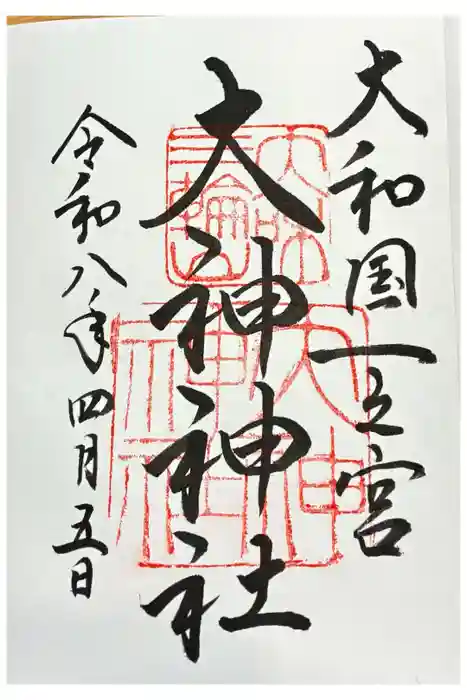 大和国一之宮
大神神社
大神神社
令和八年四月五日